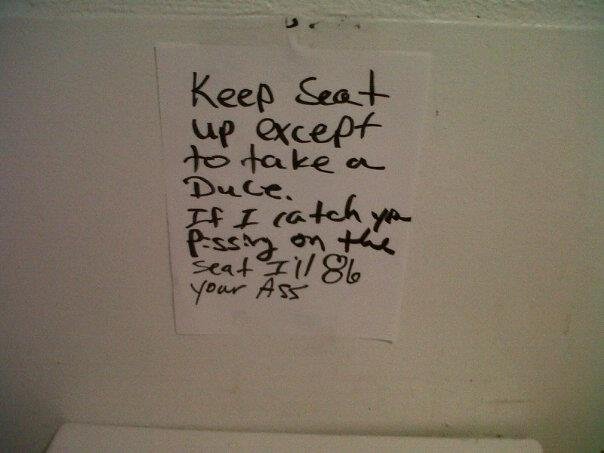 Keep Seat
up except
to take a
Duce.
If I catch you
pissing on the
seat I'll 86
your Ass